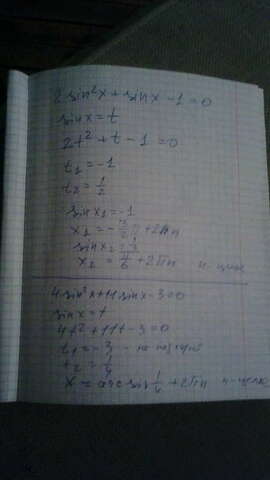 2 sin²x + sin x - 1 = 0
sin x = t
2t² + t - 1 = 0
t₁ = -1
t₂ = 1/2
sin x₁ = -1
x₁ = -π/2 + 2πn
sin x₂ = 1/2
x₂ = π/6 + 2πn н-целое
4 sin²x + 11 sin x - 3 = 0
sin x = t
4t² + 11t - 3 = 0
t₁ = -3 - не
t₂ = 1/4
x = arcsin 1/4 + 2πn н-целое